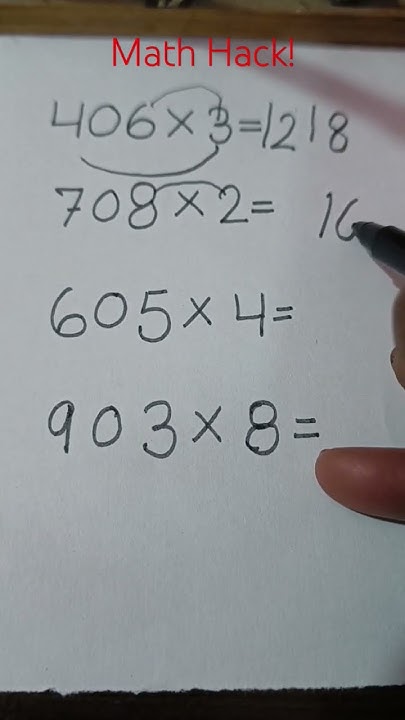 Math Hack!
406×3=1218
708×2= 16
605×4=
903×8=